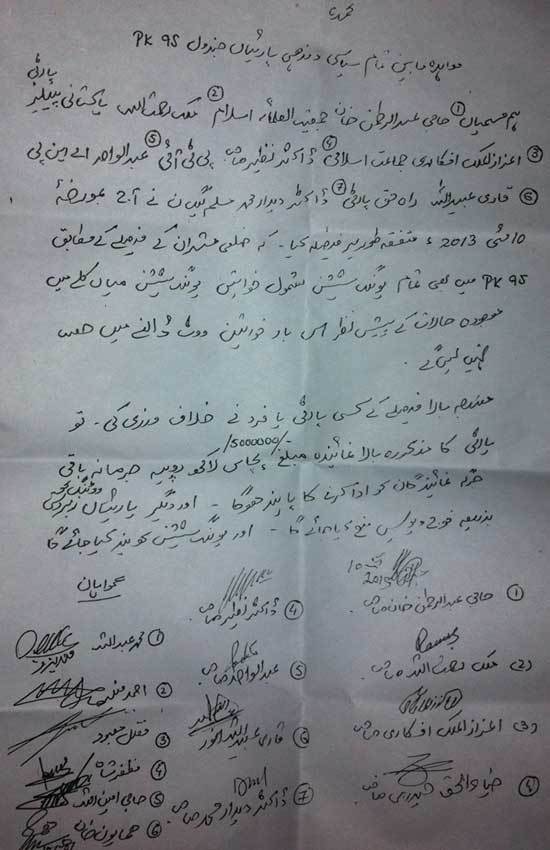 معاہدہ مابین تمام سیاسی و مذہبی پارٹیاں جندول PK 95
ہم مسمیان ① حاجی عبدالرحمٰن خان جمعیت العلماء اسلام ② ملک پاکستانی پیپلز پارٹی
③ اعزاز الملک افکاری جماعت اسلامی ④ ڈاکٹر نظیر صاحب پی ٹی آئی ⑤ عبدالواحد اے این پی
⑥ قاری عبیداللہ راہ حق پارٹی ⑦ ڈاکٹر دیدار محمد مسلم لیگ ن نے آج مورخہ
10 مئی 2013ء متفقہ طور پر فیصلہ کیا۔ کہ ضلعی مشران کے فیصلے کے مطابق
PK 95 میں بھی تمام پولنگ سٹیشن بشمول خواتین پولنگ سٹیشن میاں کلے میں
موجودہ حالات کے پیش نظر اس بار خواتین ووٹ ڈالنے میں حصہ
نہیں لیں گے۔
مندرجہ بالا فیصلے کے کسی پارٹی یا فرد نے خلاف ورزی کی۔ تو
پارٹی کا مذکورہ بالا نمائندہ مبلغ /5000000 پچاس لاکھ روپیہ جرمانہ باقی
نمائندگان کو ادا کرنے کا پابند ہوگا۔ اور دیگر پارٹیاں
بذریعہ فوج و پولیس منع کیا جائے گا۔ اور پولنگ سٹیشن کو بند کیا جائے گا
① حاجی عبدالرحمٰن خان صاحب
2) ملک صاحب
3) اعزاز الملک افکاری صاحب
ضیاء الحق حیدری صاحب
④ ڈاکٹر نظیر صاحب
⑤ عبدالواحد صاحب
⑥ قاری عبیداللہ
⑦ ڈاکٹر دیدار محمد صاحب
گواہان
① محمد عبداللہ
② احمد
③ فضل معبود
④ مظفر شاہ
⑤ حاجی امین اللہ
⑥ ہمایون خان